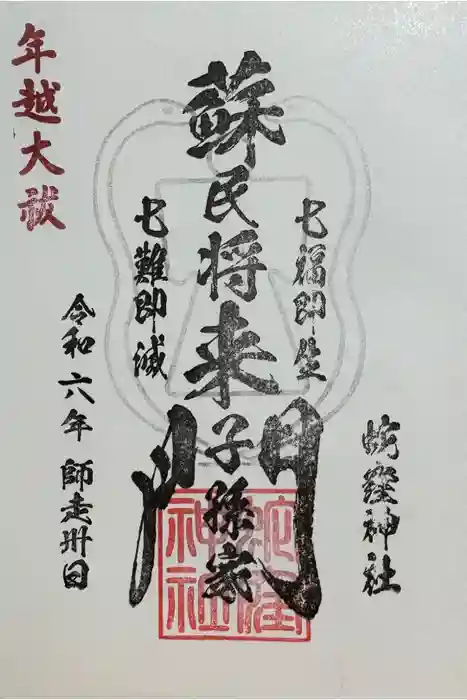 蛇窪神社
七福即生
蘇民将来子孫家門
七難即滅
令和六年 師走卅日
年越大祓
蛇窪
神社